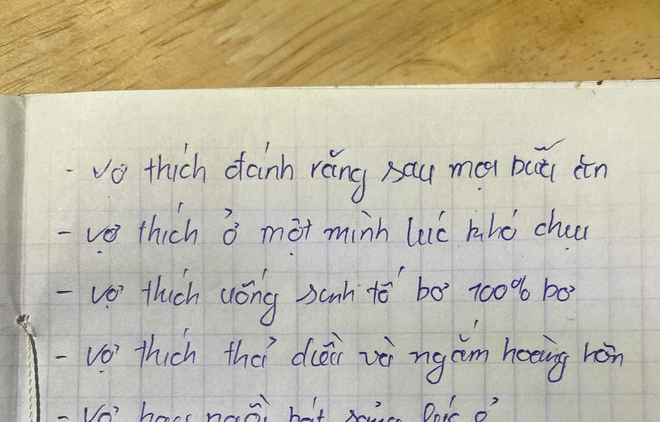 - vợ thích đánh răng sau mọi buổi ăn
- vợ thích ở một mình lúc khó chịu
- vợ thích uống sinh tố bơ 100% bơ
- vợ thích thả diều và ngắm hoàng hôn
- vợ hay ngồi hát